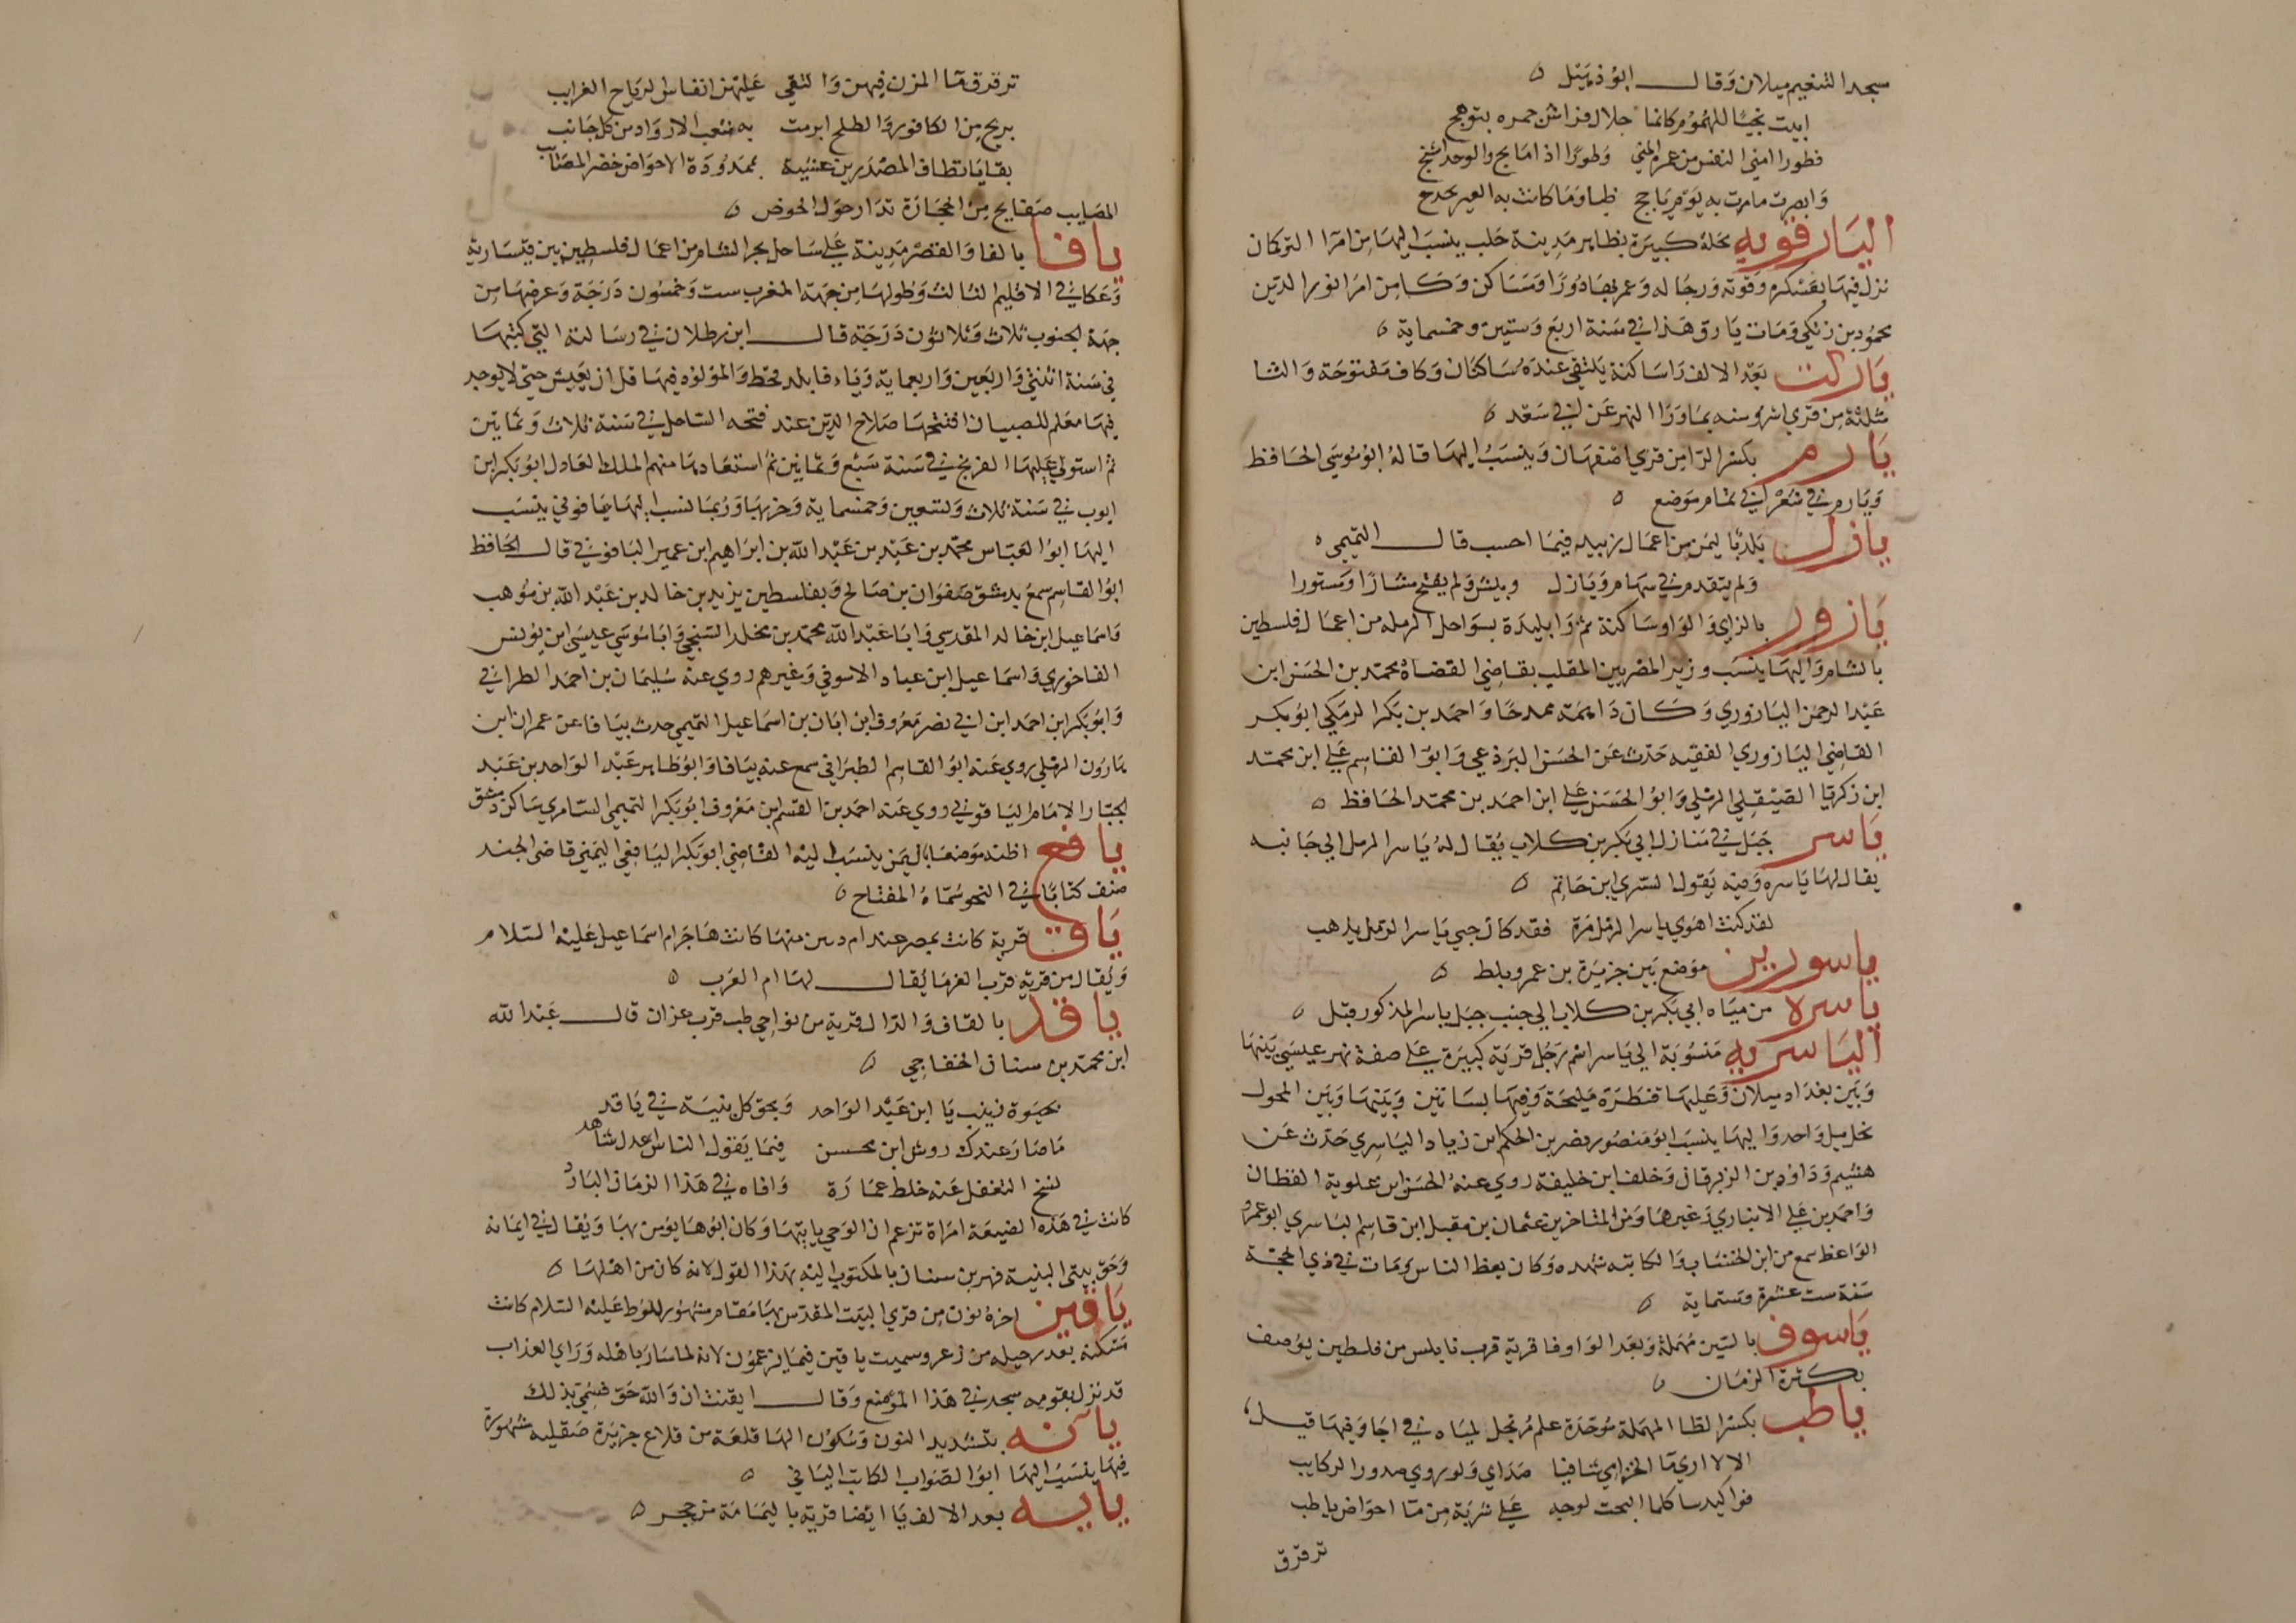 سجد التنعيم ميلان وَقالــــ ابوُ ذهبَل ٥
ابيت نجيًا للهُمُوُم كانما جلال فراش جمره بتوهج
فطورا امني النفس من غمرة المني وَطورًا اذا ما لج والوجد انشج
وَابصرت ما مرت به يَوْم يَاجج ظبا وَمَا كانت به العير تحدج
اليَاروقيه محَلة كبيَرة بظاهر مَدينة حَلب ينسَبَ اليهَا مِن امرَا التركمان
نزل فيهَا بعَسْكره وَقوته وَرجَاله وَعمر بهَا دُورًا وَمسَاكن وَكـان مِن امرَا نور الدّين
محمُود بن زنكي وَمَات يَاروق هَذا في سَنة اربَع وَستين وخمسماية ٥
يَاركت بعَد الالف رَا سَاكنة يلتقي عندَهُ سَاكنان وَكاف مَفتوحَة وَالثا
مثلثة مِن قري اشروسنه بمَا وَرَا النهر عَن ابي سَعْد ٥
يَارم بكسْر الرّا مِن قري اصْفهَان وَينسَبُ اليهَا قالهُ ابوُ مُوسَي الحَافظ
وَيَارم في شعْر ابي تمام موَضع ٥
يازل بَلد بَاليمَن مِن اعمَال زبيد فيمَا احسب قالــــ التميمي ٥
وَلم يتقدم في سهَام وَيَازل وبيش وَلم يفتح مشارًا وَمستورا
يَازور بالزاي وَالوَاو سَاكنة ثم رَا بليدَة بسَواحل الرمله من اعمَال فلسطين
بالشام وَاليهَا ينسَب وزير المصْريين الملقب بقاضي القضاة محمّد بن الحسَن ابن
عَبْد الرحمن اليَازوري وَكـان ذَا همّة ممدحًا وَاحمَد بن بَكر الرمَكي ابوُ بكـر
القاضي اليَازوري الفقيه حَدّث عَن الحسَن البَرذعي وَابوُ القاسِم عَلي ابن محمّد
ابن زكريّا الصّيْقلي الرمْلي وَابوُ الحسَن عَلي ابن احمَد بن محمّد الحَافظ ٥
يَاسر جَبَل في مَنازل ابي بَكر بن كـلاب يُقال لهُ يَاسر الرمل الي جَانبه
يقال لهَا يَاسره وَفيه يَقول السّري ابن حَاتم ٥
لقد كنت اهوَي ياسر الرمْل مَرّة فقد كاد حبي يَاسر الرمل يذهب
ياسورين موَضع بَين جزيَرة بن عمر وبلط ٥
ياسرة من ميَاه ابي بَكر بن كـلاب الي جنب جبَل ياسر المذكور قبْل ٥
اليَاسريه مَنسُوبَة الي يَاسر اسْم رَجُل قريَة كبيَرة عَلي ضفة نهر عيسَي بَينهَا
وَبَين بغدَاد ميلان وَعَليهَا قنطَرَة مَليحَة وَفيهَا بسَاتين وَبَينهَا وَبَين المحول
نحو ميل وَاحد وَاليهَا ينسَب ابوُ مَنصُور نصر بن الحكم ابن زيَاد اليَاسِري حَدّث عَن
هشيم وَدَاوُد بن الزبرقان وَخلف ابن خليفة روي عنهُ الحسَن ابن علوية القطان
وَاحمَد بن عَلي الابَاري وَغيرهمَا وَمن المتاخرين عثمان بن مقبل ابن قاسِم اليَاسري ابوُ عمرو
الوَاعظ سمع من ابن الخشاب وَالكاتبه شهده وَكان يعظ الناس وَمَات في ذي الحجّـة
سَنة ست عشرة وَستماية ٥
يَاسوف بالسّين مُهمَلة وَبعَد الوَاو فا قرية قرب نابلس من فلسطين يوُصف
بكـثرة الرمَان ٥
ياطب بكسْر الطا المهمَلة مُوَحّدَة علم مُرتجل لميَاه في اجَا وَفيهَا قيـل
الا لا اري مَا الخزامي شافيا صَدَاي وَلو روي صدور الركايب
فوا كبدينا كلما التحت لوحه عَلي شربَة مِن مَا احوَاض ياطب
ترقرق
ترقرق مَا المزن فيهن وَالتقي عَليهْن انفاس الريَاح الغرايب
بريح مِن الكافور وَالطلح ابرمت به شعب الاروَاد من كل جَانب
بقايَا نطاف المصْدَرين عشيه بممدُودَة الاحوَاض خضر المصَايب
المصَايب صَفايح مِن الحجَارَة تدَار حوَل الحوض ٥
يافا بالفا وَالقصْر مَدينة عَلي سَاحل بحر الشام من اعمَال فلسطين بَين قيسَارية
وَعَكا في الاقليم الثالث وَطولهَا من جهَة المغرب ست وَخمسُون دَرَجَة وَعرضهَا مِن
جهَة الجنوب ثلاث وَثلاثوُن دَرَجَة قالــــ ابن بطلان في رسَالته التي كتبهَا
في سَنة اثنتي وَاربَعين وَاربعماية وَيَافا بلد قحط وَالموَلوُد فيهَا قل ان يعَيش حتي لا يوجد
فيهَا مَعَلم للصبيان افتتحهَا صَلاح الدين عند فتحه السَاحل في سَنة ثلاث وَثمانين
ثم استولي عَليهَا الفرنج في سَنة سَبْع وَثمانين ثم استعَادهَا منهم الملك العَادل ابوُ بَكر ابن
ايوب في سَنة ثلاث وَتسْعين وَخمسماية وَخربهَا وَرُبمَا نسب اليهَا يَافوني ينسَب
اليهَا ابوُ العَبّاس محمّد بن عَبْد بن عَبْد الله بن ابرَاهيم ابن عمير اليَافوني قالــ الحَافظ
ابوُ القاسِم سمعَ بدمشق صَفوَان بن صَالح وَبفلسطين يزيد بن خالد بن عَبْد الله بن مُوهب
وَاسمَاعيل ابن خالد المقدسي وَابَا عَبْد الله محمّد بن مخلد السّبَحي وَابَا مُوسَي عيسَي ابن يوُنس
الفاخوري وَاسمَاعيل ابن عبَاد الاسوفي وَغيرهم روي عنهُ سُليمَان بن احمَد الطبراني
وَابوُ بَكر ابن احمَد ابن ابي نصر مَعْرُوف ابن ابَان بن اسمَاعيل التميمي حدث بيَافا عن عمران ابن
هَارُون الرمْلي روي عَنه ابوُ القاسِم الطبرَاني سمع عنه بيَافا وَابوُ طاهر عَبْد الوَاحد بن عَبْد
الجبّار الامَام اليَافوني روي عَنه احمَد بن القسم ابن مَعْرُوف ابوُ بَكر التميمي السّامري سَاكن دمشق
يافع اظنه موَضعًا بَاليمَن ينسَب اليْه القاضِي ابوُ بَكر اليَافِعي اليَمني قاضي الجند
صنف كتابًا في النحو سُمّاهُ المفتاح ٥
يَاق قرية كانت بمصر عند ام دنين منهَا كانت هَاجَر ام اسمَاعيل عَليْه السّلام
وَيُقال من قرية قرب الفرمَا يُقالــــ لهَا ام العَرب ٥
ياقد بالقاف وَالدّال قرية من نوَاحي حلب قرب عزاز قالــــ عَبْد الله
ابن محمّد بن سنان الخفاجي ٥
بحيَوة زينب يَا ابن عَبْد الوَاحد وَبحق كل بنيَة في يَاقد
مَا صَارَ عندك روش ابن محسن فيمَا يَقول الناس عدل شاهد
نسخ التغفل عَنه خلط عمَارَة وَافاه في هَذا الزمَان البَارد
كانت في هَذه الضيعَة امرَاة تزعم ان الوَحي ياتيهَا وَكان ابوُهَا يؤمن بهَا وَيُقال في ايمَانه
وَحَق بيتي البنية فهو بن سنان بالمكتوب اليْه بهَذا القول لانه كان من اهْلهَا ٥
يَاقين اخرهُ نون مِن قري البيَت المقدّس بهَا مَقام مشهُور للوُط عَليْه السّلام كانت
مَسْكنه بعد رحيله من زغر وسميت ياقين فيمَا يزعموُن لانه لما سَار بَاهْله وَرَاي العذاب
قد نزل بقومه سجد في هَذا الموُضع وَقالــــ ايقنت ان وَالله حَق فسُمّي بذلك
يانه بتشديد النون وَسُكوُن الهَا قلعَة من قلاع جزيَرة صَقليه مشهُورة
فيهَا ينسَبُ اليهَا ابوُ الصّوَاب الكاتبُ اليَاني ٥
يايـــه بعد الالف يَا ايضا قرية باليَمَامَة من حجـر ٥